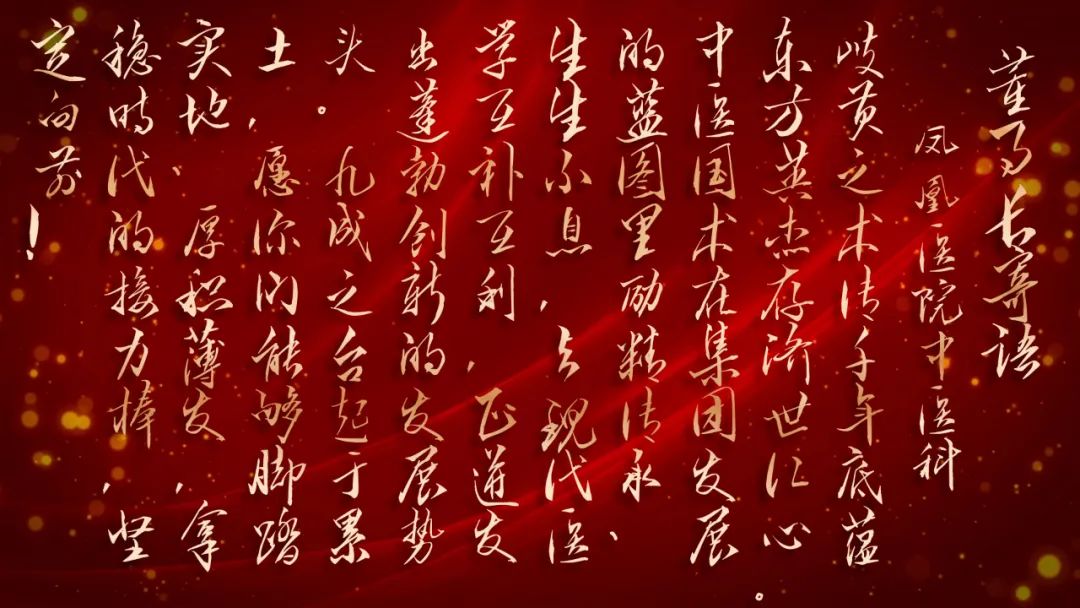 董事长寄语
凤凰医院中医科
岐黄之术传千年底蕴
东方英杰存济世仁心。
中医国术在集团发展
的蓝图里励精传承、
生生不息，与现代医
学互补互利，正迸发
出蓬勃创新的发展势
头。九成之台起于累
土，愿你们能够脚踏
实地、厚积薄发，拿
稳时代的接力棒，坚
定向前！